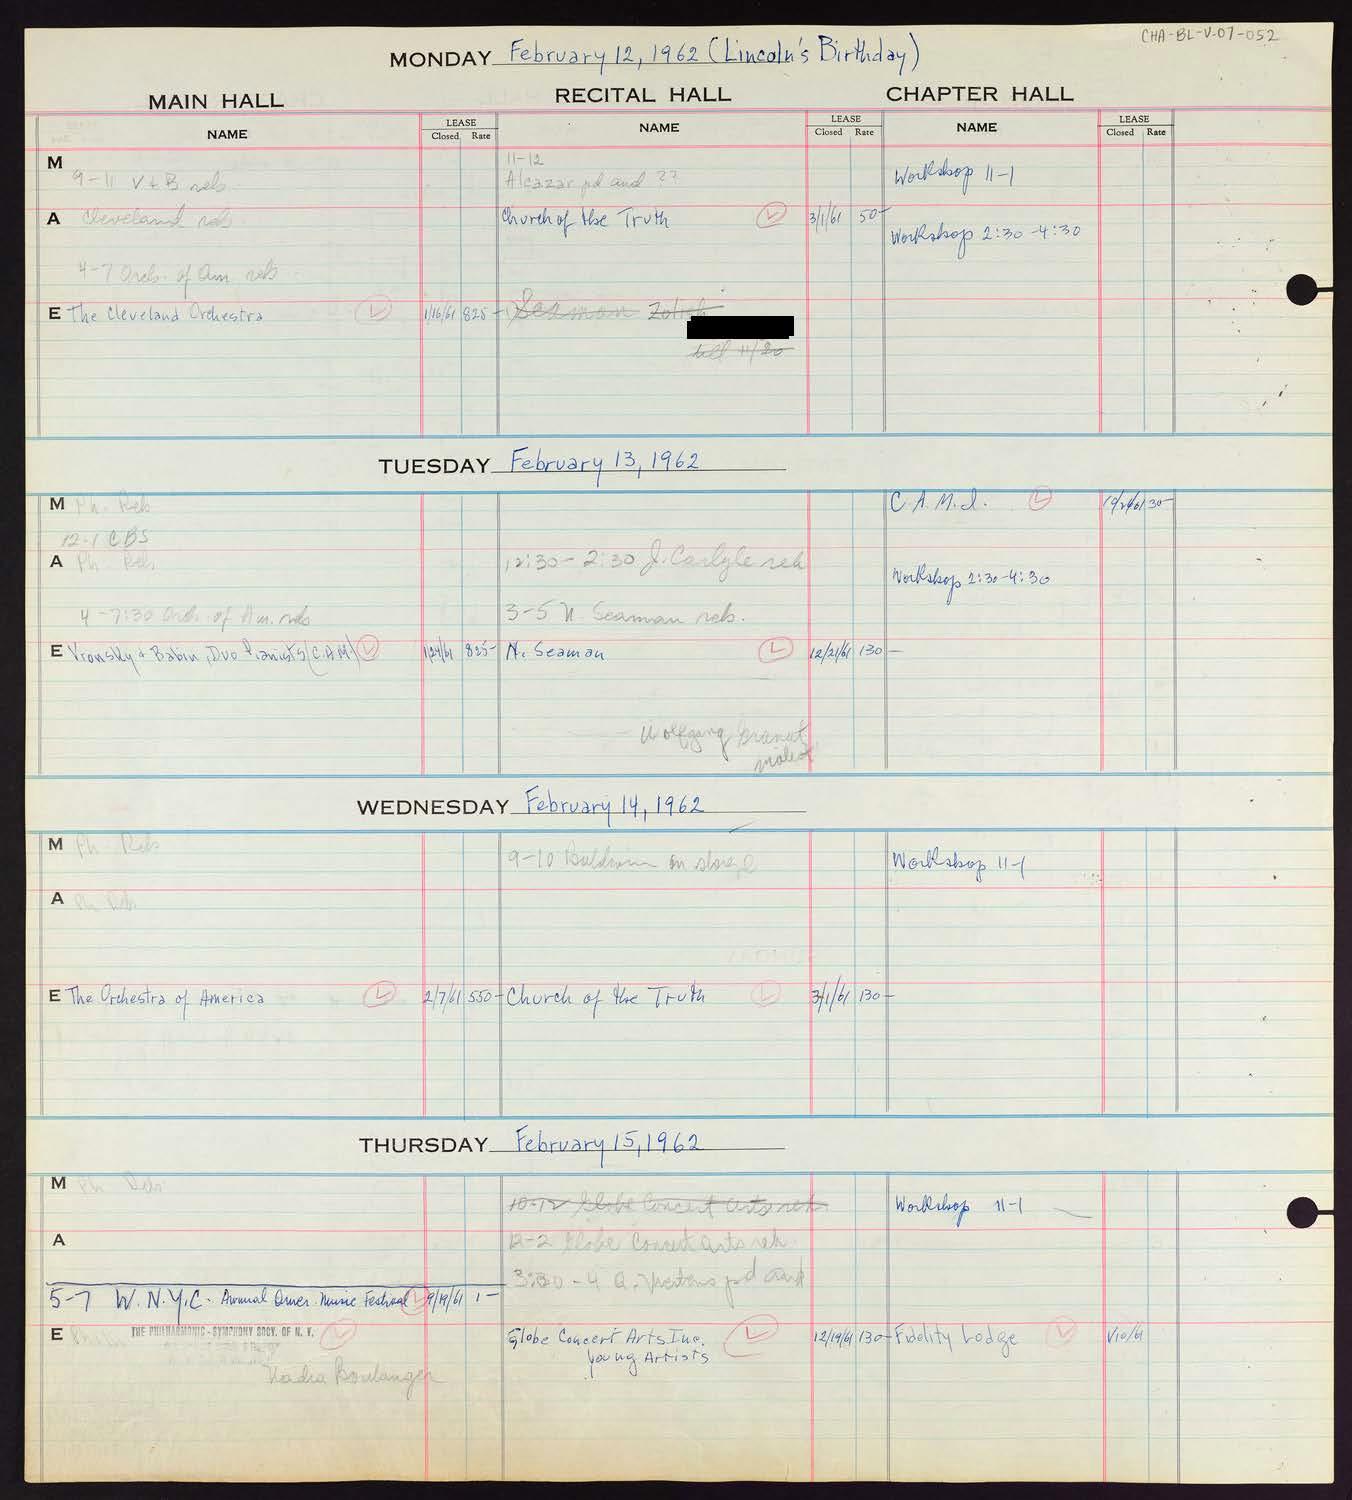 CHA-BL-V-07-052
MONDAY February 12, 1962 (Lincoln's Birthday)
MAIN HALL RECITAL HALL CHAPTER HALL
NAME LEASE Closed Rate NAME LEASE Closed Rate NAME LEASE Closed Rate
M 9-11 V + B reh. 11-12 Workshop 11-1
Alcazar pd aud ??
A Cleveland reh Church of the Truth 3/1/61 50- Workshop 2:30-4:30
4-7 Orch. of Am reh
E The Cleveland Orchestra 1/16/61 825- Seaman
till 11/20
TUESDAY February 13, 1962
M Ph. Reh C.A.M.I. 30-
12-1 CBS
A Ph. Reh 12:30-2:30 J. Carlyle reh Workshop 2:30-4:30
4-7:30 Orch. of Am. reh 3-5 N. Seaman reh.
E Vronsky + Babin, Duo Pianists (C.A.M.) 1/24/61 825- N. Seaman 12/21/61 130-
Wolfgang
violist
WEDNESDAY February 14, 1962
M Ph. Reh 9-10 Baldwin on stage Workshop 11-1
A Ph Reh
E The Orchestra of America 2/7/61 550- Church of the Truth 3/1/61 130-
THURSDAY February 15, 1962
M Ph. Reh 10-12 Globe Concert Arts reh Workshop 11-1
A 12-2 Globe Concert Arts reh.
3:30-4 pd aud
5-7 W.N.Y.C. - Annual Amer. Music Festival 9/19/61 1-
E THE PHILHARMONIC-SYMPHONY SOCY. OF N. Y. Globe Concert Arts Inc. 12/19/61 130- Fidelity Lodge 1/10/61
Young Artists
Nadia Boulanger